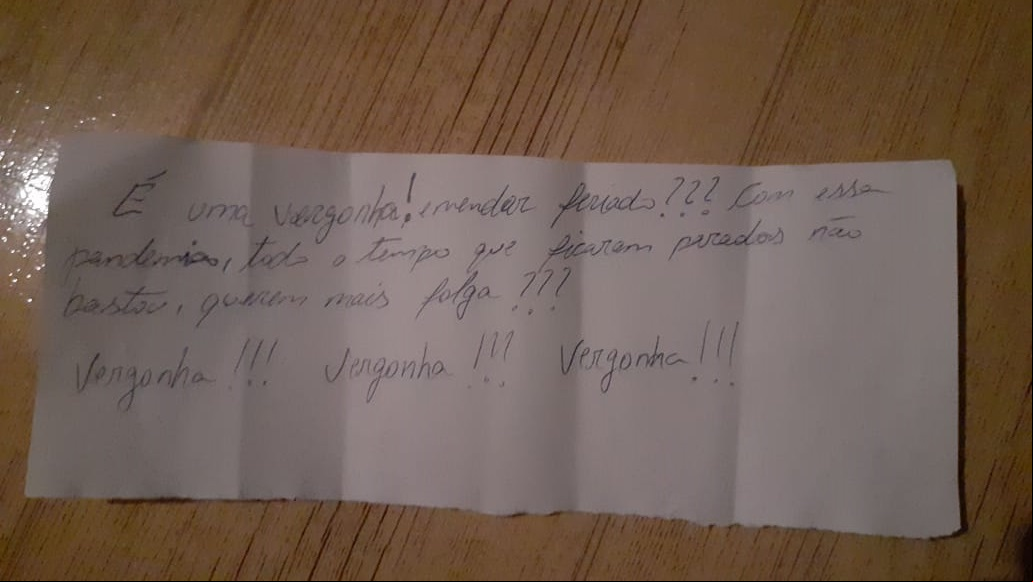 É uma vergonha! emendar feriado??? Com essa
pandemia, todo o tempo que ficaram parados não
bastou, querem mais folga???
Vergonha!!! Vergonha!!! Vergonha!!!